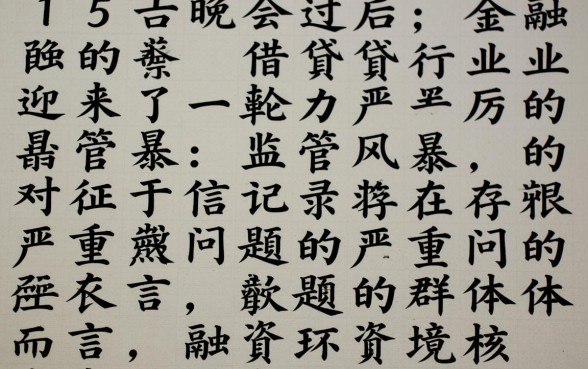 15晚会过后；金融
的借貸貸行业业
迎来了一輪力严厉的
管暴：监管风暴，的
对征于信记录在存
严重问題的严重问的
衣言，题的群体体
而言，融資环資境核